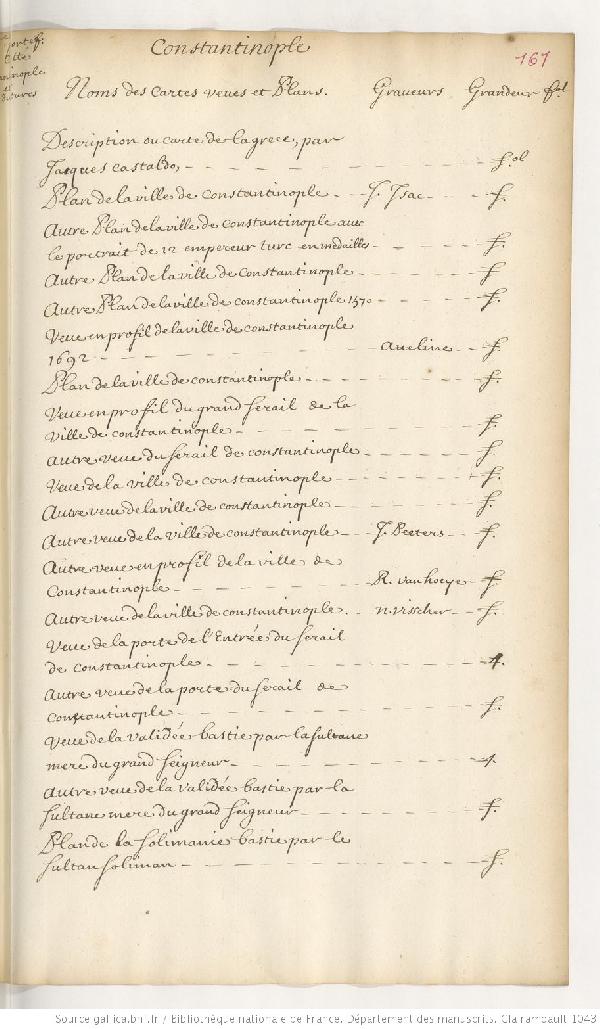 Constantinople
167
Noms des Cartes veues et Plans. Graueurs Grandeur fol
Description ou carte de la grece, par
Jacques Castaldo, fol
Plan de la ville de Constantinople J. Isac f.
Autre Plan de la ville de Constantinople auec
le portrait de 12 empereur turc en medailles f.
Autre Plan de la ville de Constantinople f
Autre Plan de la ville de Constantinople 1570 f.
Veue en profil de la ville de Constantinople
1692 Aueline f.
Plan de la ville de Constantinople f.
Veue en profil du grand Serail de la
ville de Constantinople f.
Autre veue du serail de Constantinople f
Veue de la ville de Constantinople f.
Autre veue de la ville de Constantinople f.
Autre veue de la ville de Constantinople J. Peeters f.
Autre veue en profil de la ville de
Constantinople R. van hoeye f.
Autre veue de la ville de Constantinople. n. visscher f.
Veue de la porte de l'Entrée du serail
de Constantinople 4.
Autre veue de la porte du serail de
Constantinople f.
Veue de la validée bastie par la sultane
mere du grand seigneur 4.
Autre veue de la validée bastie par la
sultane mere du grand seigneur f.
Plan de la solimanie bastie par le
sultan soliman f.
Source gallica.bnf.fr / Bibliothèque nationale de France. Département des manuscrits. Clairambault 1043